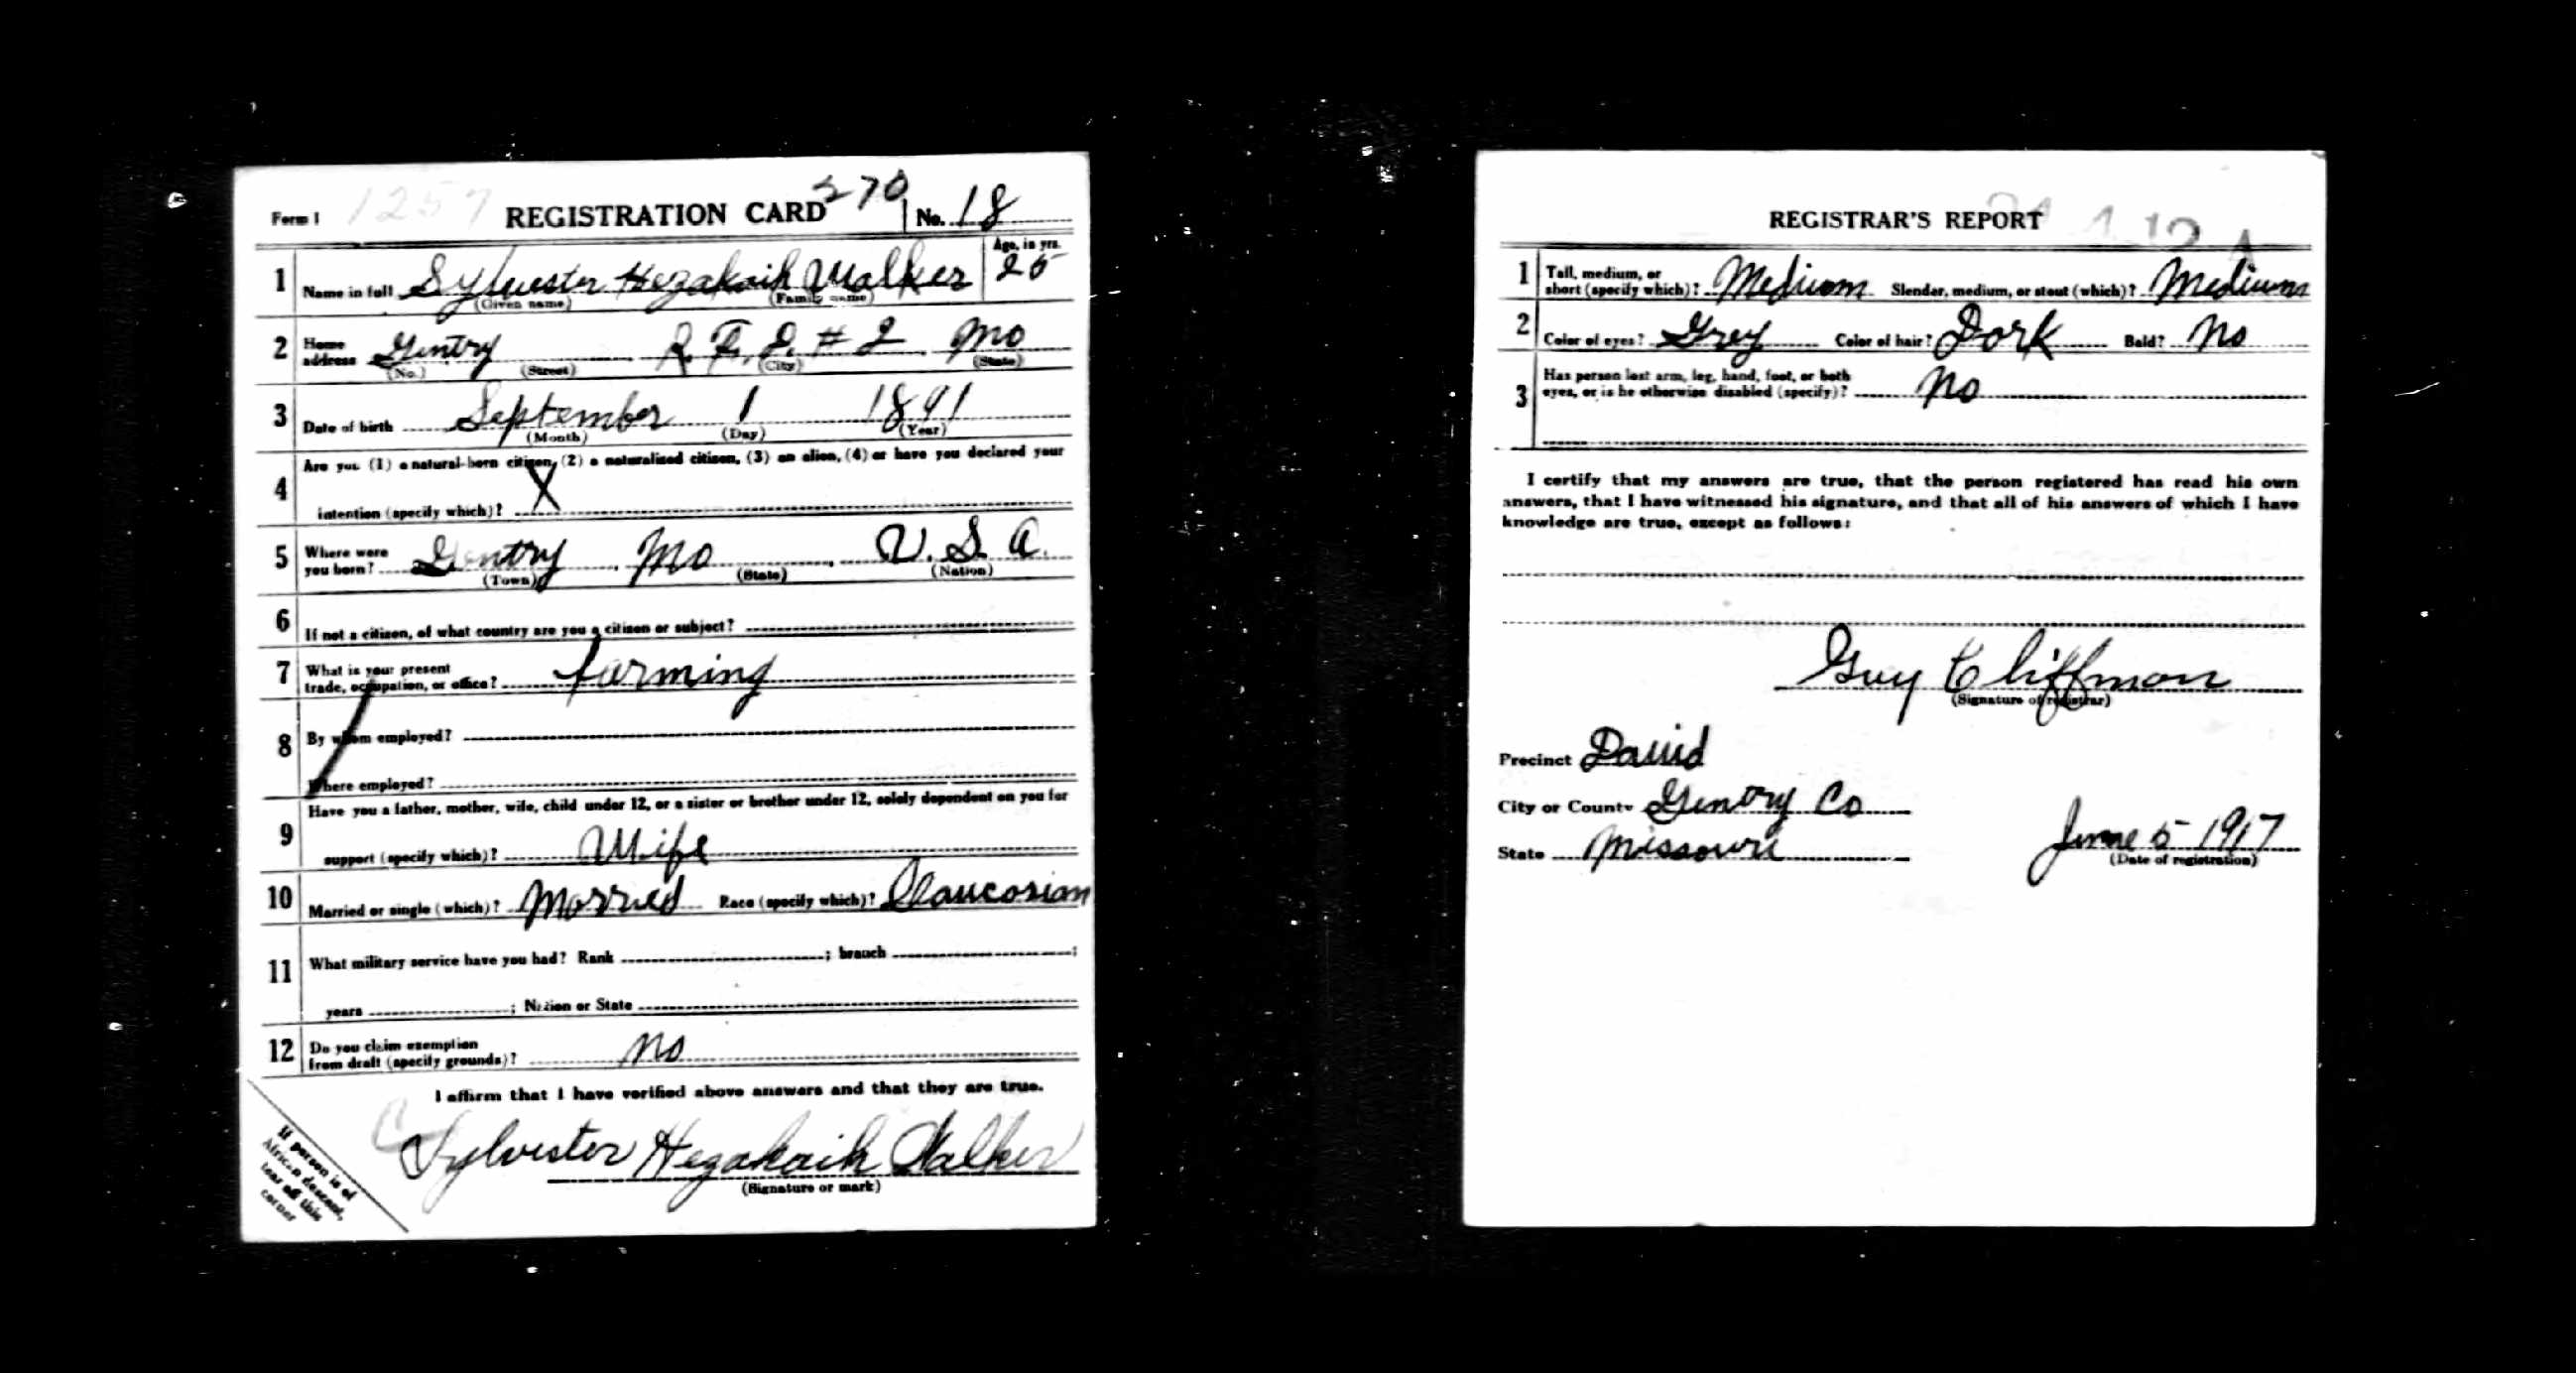 Form 1 1257 REGISTRATION CARD 270 No. 18
1 Name in full Sylvester Hezakaih Walker Age, in yrs. 25
(Given name) (Family name)
2 Home address Gentry R. F. D. # 2 Mo
(No.) (Street) (City) (State)
3 Date of birth September 1 1891
(Month) (Day) (Year)
4 Are you (1) a natural-born citizen, (2) a naturalized citizen, (3) an alien, (4) or have you declared your
intention (specify which)? X
5 Where were you born? Gentry Mo U. S. A.
(Town) (State) (Nation)
6 If not a citizen, of what country are you a citizen or subject?
7 What is your present trade, occupation, or office? farming
8 By whom employed?
Where employed?
9 Have you a father, mother, wife, child under 12, or a sister or brother under 12, solely dependent on you for
support (specify which)? Wife
10 Married or single (which)? Married Race (specify which)? Caucosian
11 What military service have you had? Rank ; branch ;
years ; Nation or State
12 Do you claim exemption from draft (specify grounds)? No
I affirm that I have verified above answers and that they are true.
Sylvester Hezakaih Walker
(Signature or mark)
If person is of
African descent,
tear off this
corner
REGISTRAR'S REPORT
1 Tall, medium, or short (specify which)? Medium Slender, medium, or stout (which)? Medium
2 Color of eyes? Grey Color of hair? Dark Bald? No
3 Has person lost arm, leg, hand, foot, or both
eyes, or is he otherwise disabled (specify)? No
I certify that my answers are true, that the person registered has read his own
answers, that I have witnessed his signature, and that all of his answers of which I have
knowledge are true, except as follows:
Guy Cliffman
(Signature of registrar)
Precinct David
City or County Gentry Co
State Missouri June 5 1917
(Date of registration)